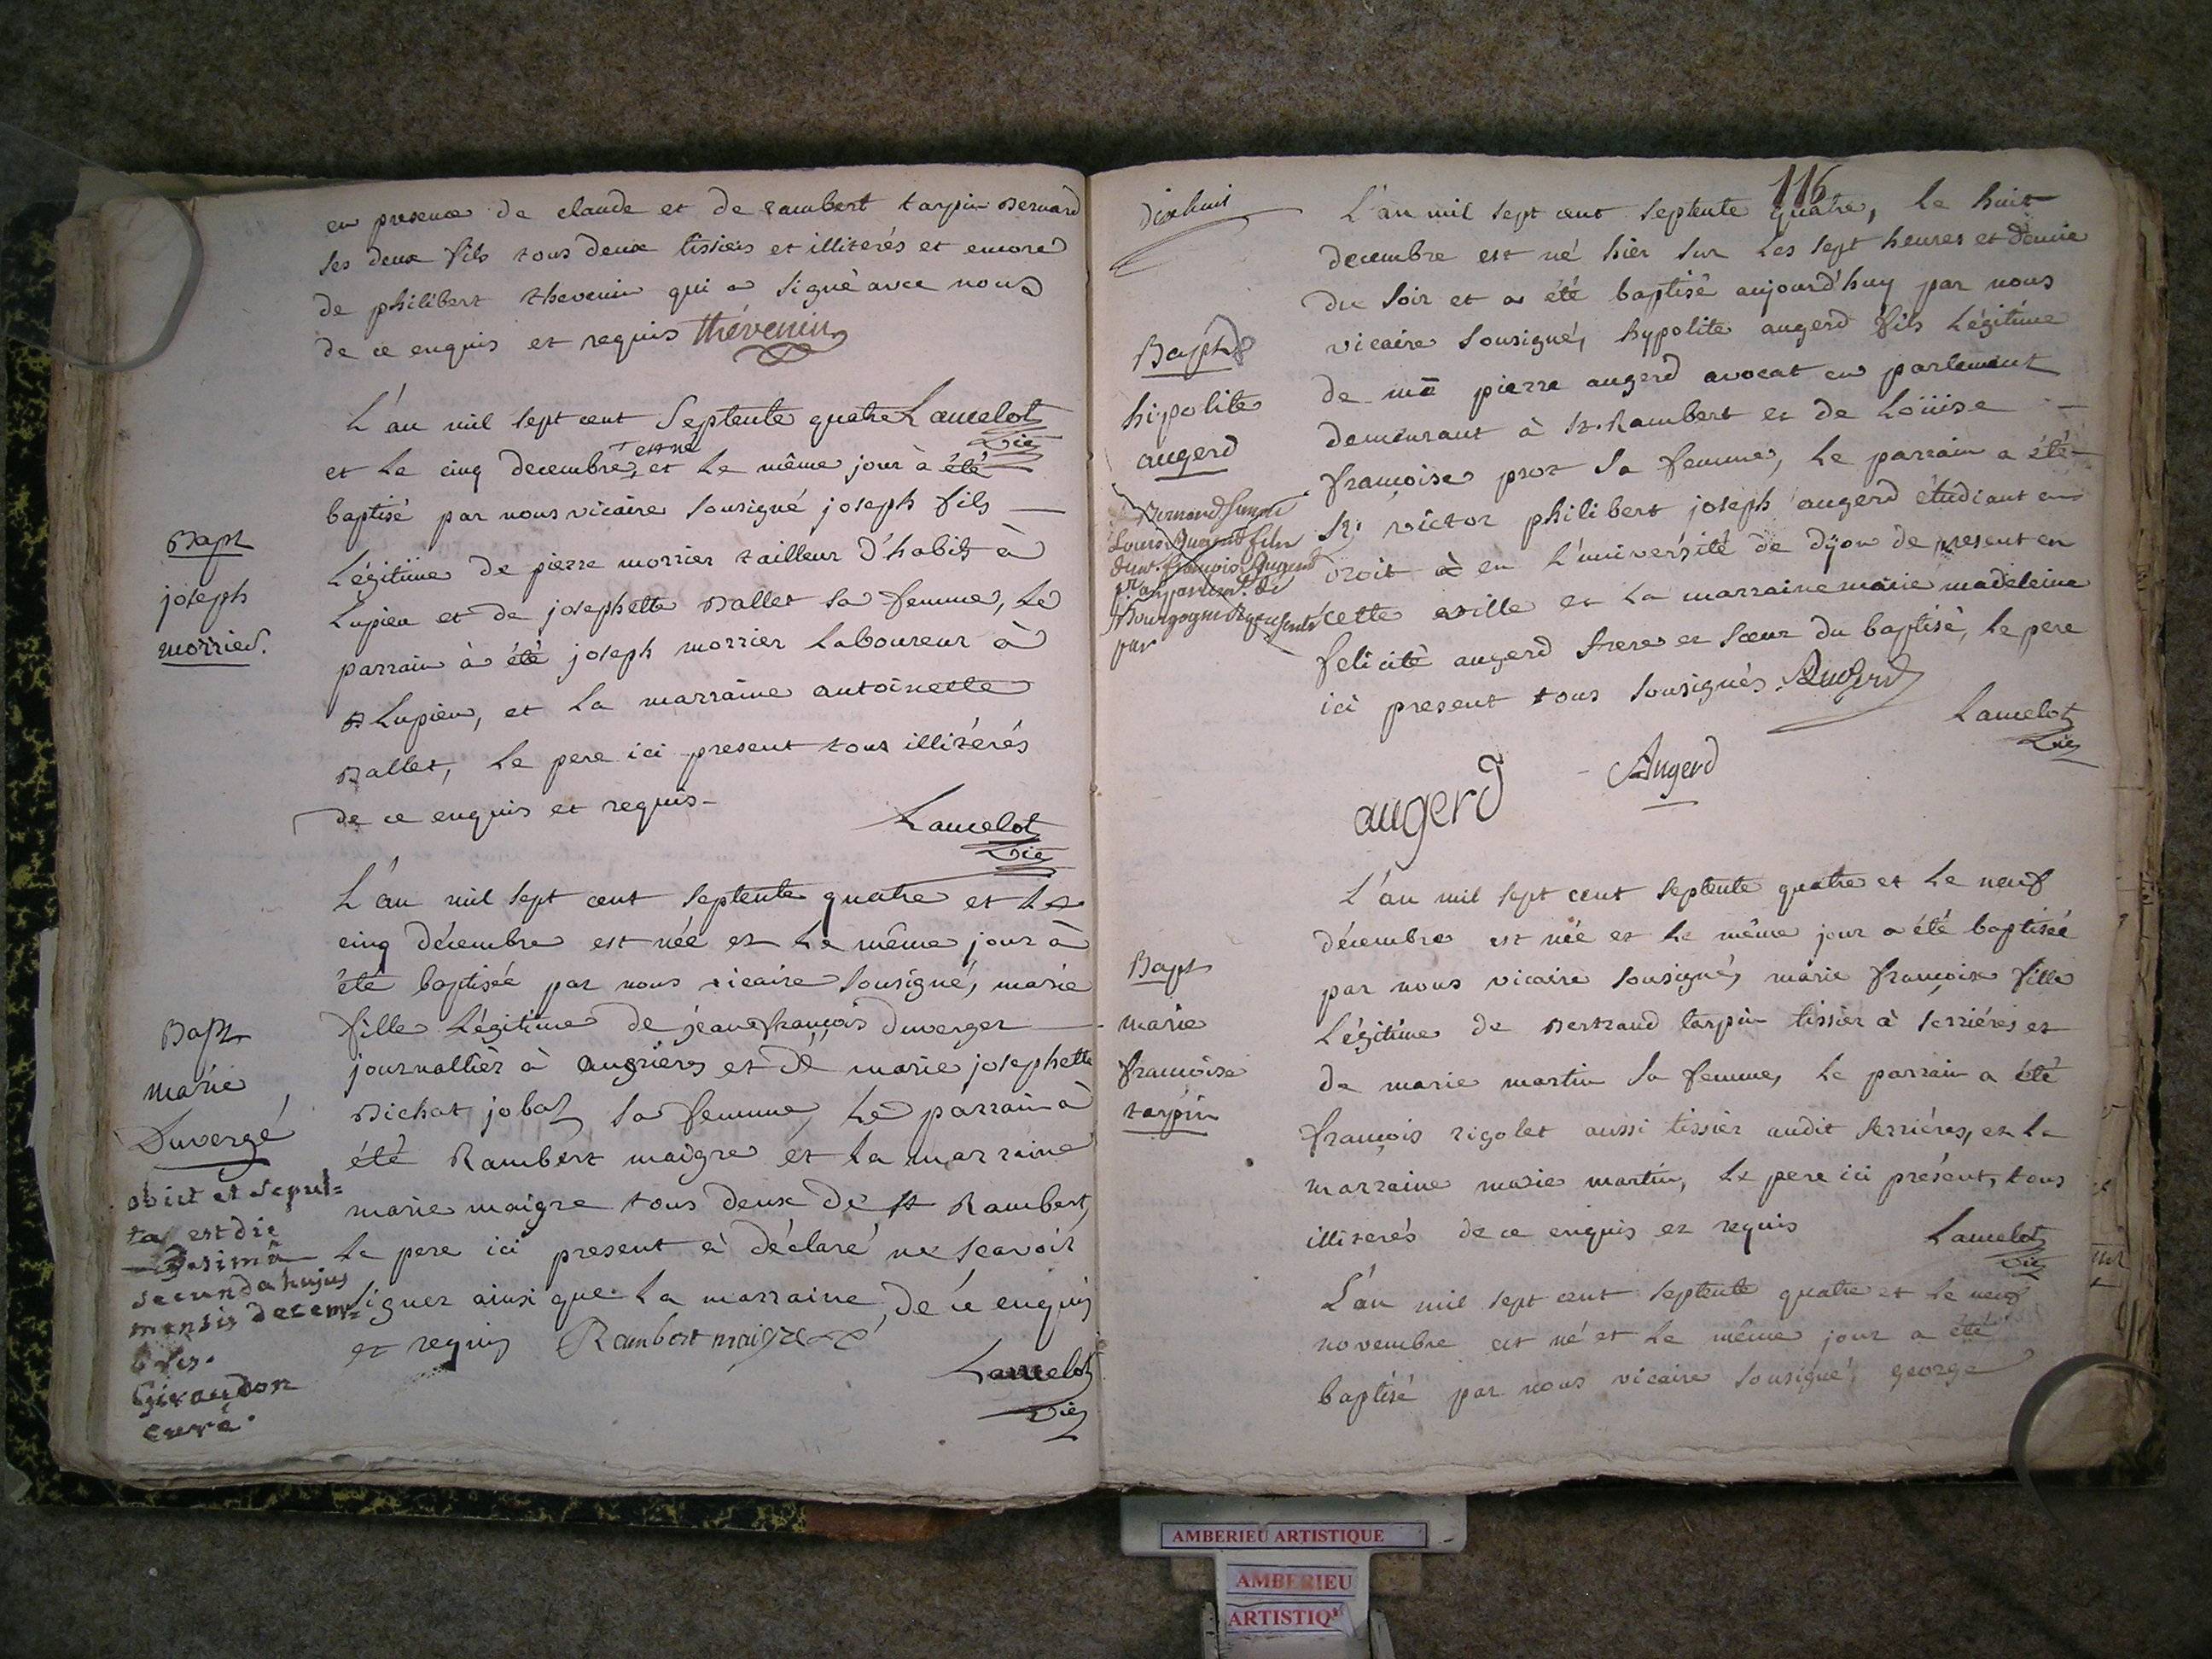 en presence de claude et de rambert tarpin Bernard
ses deux fils tous deux tissiers et illiterés et encore
de philibert thevenin qui a signé avec nous
de ce enquis et requis Thévenin
Lancelot
Vic
L'an mil sept cent Septente quatre
et Le cinq decembre, est né et Le même jour à été
baptisé par nous vicaire sousigné joseph fils
Bapt
joseph
morrier.
Légitime de pierre morrier tailleur d'habits à
Lupieu et de josephette Ballet sa femme, Le
parrain à été joseph morrier Laboureur à
Lupieu, et La marraine antoinette
Ballet, Le pere ici present tous illitérés
de ce enquis et requis
Lancelot
Vic
L'an mil sept cent septente quatre et Le
cinq décembre est née et Le même jour à
été baptisée par nous vicaire sousigné, marie
Bapt
marie
Duvergé
fille Légitime de jean françois duverger
journallier à angrieres et de marie josephette
Bichat jobat sa femme, Le parrain à
été Rambert maigre et la marraine
marie maigre tous deux de st Rambert,
Le pere ici present a déclaré ne scavoir
signer ainsi que La marraine, de ce enquis
et requis Rambert maigre
Lancelot
Vic
obiit et sepul=
ta est die
secunda hujus
mensis decem=
bris.
Giraudon
curé.
116
Dixhuit
L'an mil sept cent septente quatre, Le huit
decembre est né hier sur Les sept heures et demie
du soir et a été baptisé aujourd'huy par nous
Bapt
hipolite
augerd
vicaire sousigné, hypolite augerd fils Légitime
de me pierre augerd avocat en parlement
demeurant à st. Rambert et de Loüise
françoise prot sa femme, Le parrain a été
sr. victor philibert joseph augerd étudiant en
droit en L'université de dijon de present en
cette ville et La marraine marie madeleine
felicité augerd frere et sœur du baptisé, Le pere
ici present tous sousignés. Augerd
Lancelot
Vic
augerd
Augerd
L'an mil sept cent septente quatre et Le neuf
décembre est née et Le même jour a été baptisée
Bapt
marie
françoise
tarpin
par nous vicaire sousigné, marie françoise fille
Légitime de Bertrand tarpin tissier à serriéres et
de marie martin sa femme, Le parrain a été
françois rigolet aussi tissier audit serriéres, et La
marraine marie martin, Le pere ici présent, tous
illiterés de ce enquis et requis
Lancelot
Vic
L'an mil sept cent septente quatre et Le neuf
novembre est né et Le même jour a été
baptisé par nous vicaire sousigné, george
AMBERIEU ARTISTIQUE
AMBERIEU
ARTISTIQ